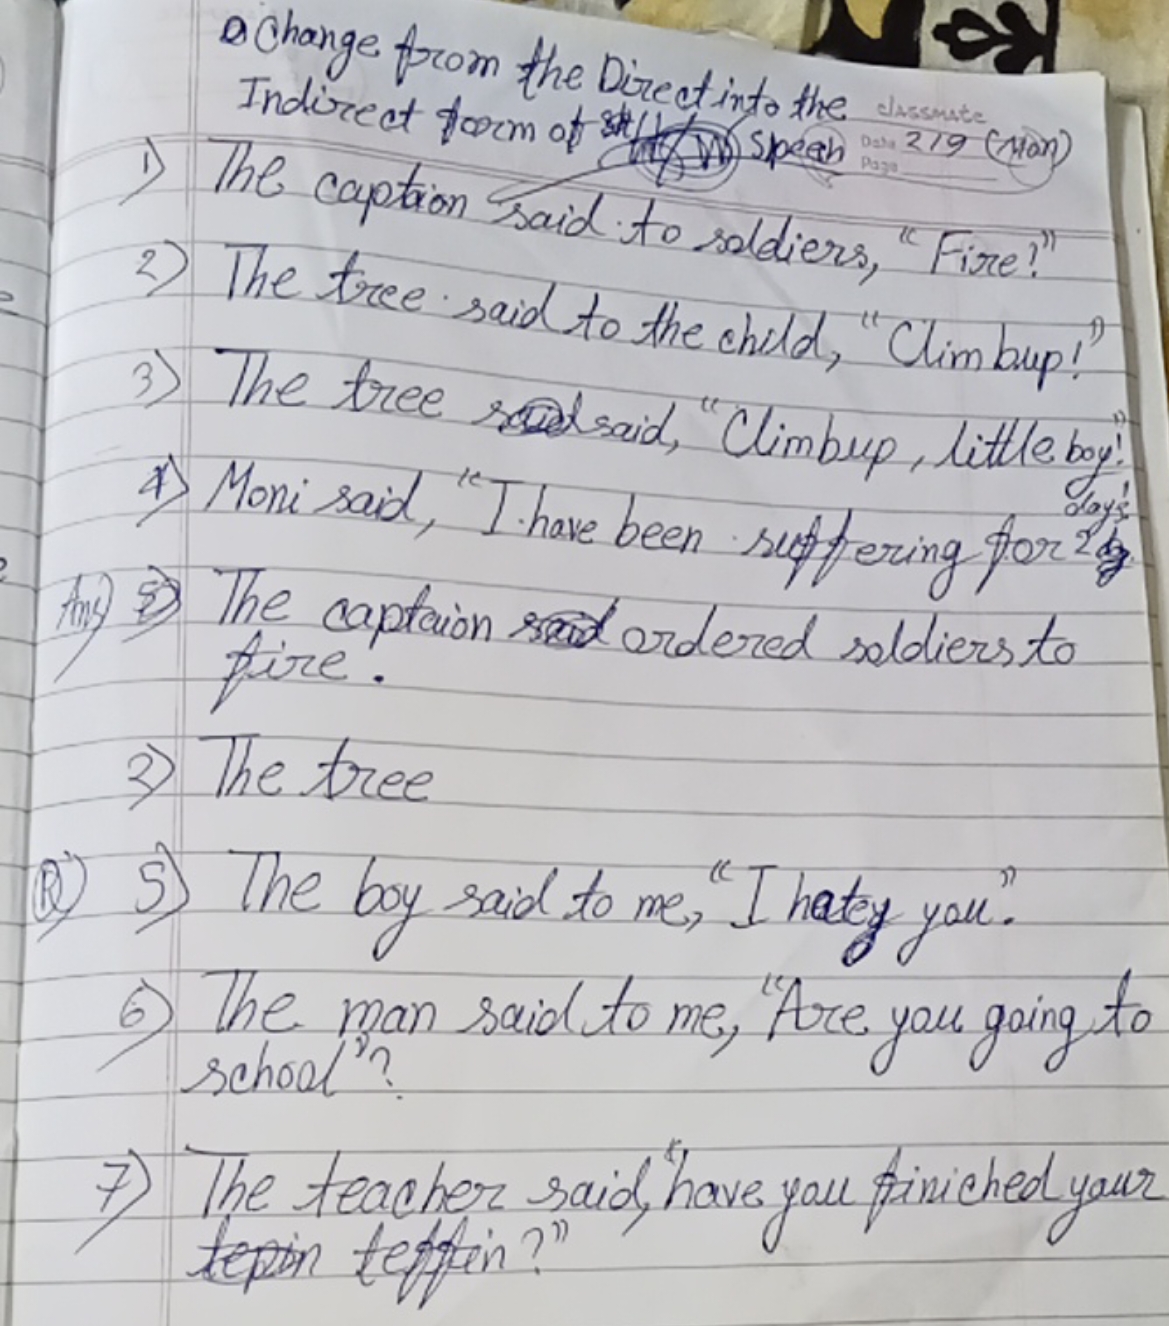 Change from the Direct into the
Indirect form of speech
classmate
Date 2/9 (Mon)
Page
1) The caption said to soldiers, "Fire!"
2) The tree said to the child, "Climbup!"
3) The tree said, "Climbup, little boy!"
4) Moni said, "I have been suffering for 2 days!
Ans) The captaion ordered soldiers to
fire.
2) The tree
Q) 5) The boy said to me, "I hate you".
6) The man said to me, "Are you going to
school"?
7) The teacher said, "have you finiched your
teffin?"